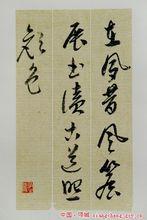 在夙昔風簷
展書讀古道照
顏色